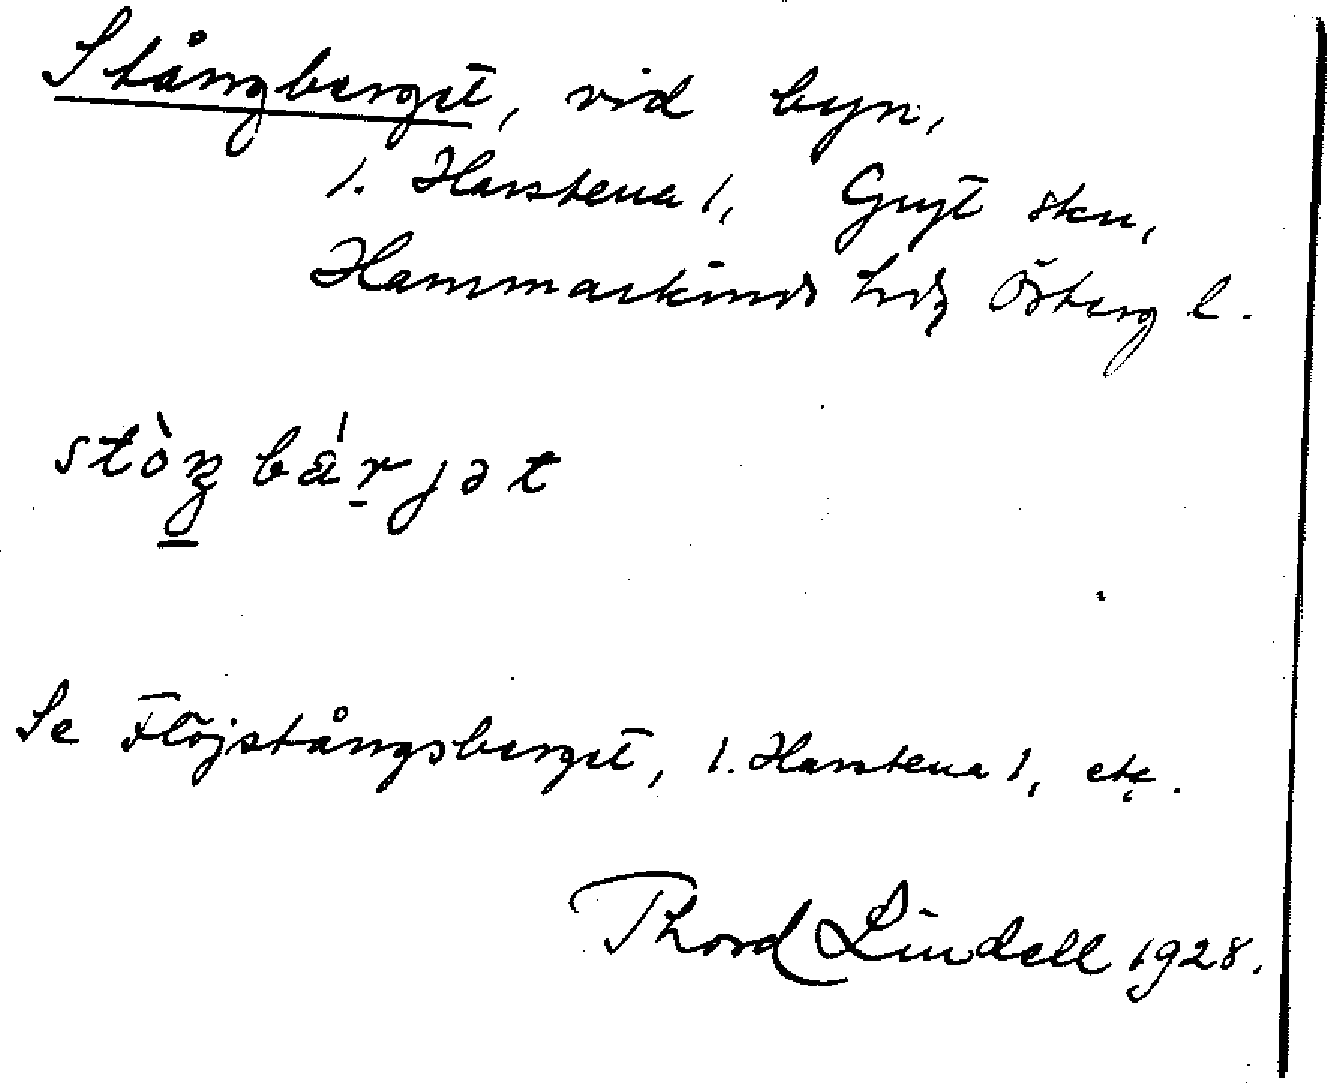 Stångberget, vid byn,
1. Harstena 1, Gryt skn,
Hammarkinds hd, Österg l.
stòŋbá̈rjət
Se Flöjstångsberget, 1. Harstena 1, etc.
Thord Lindell 1928.